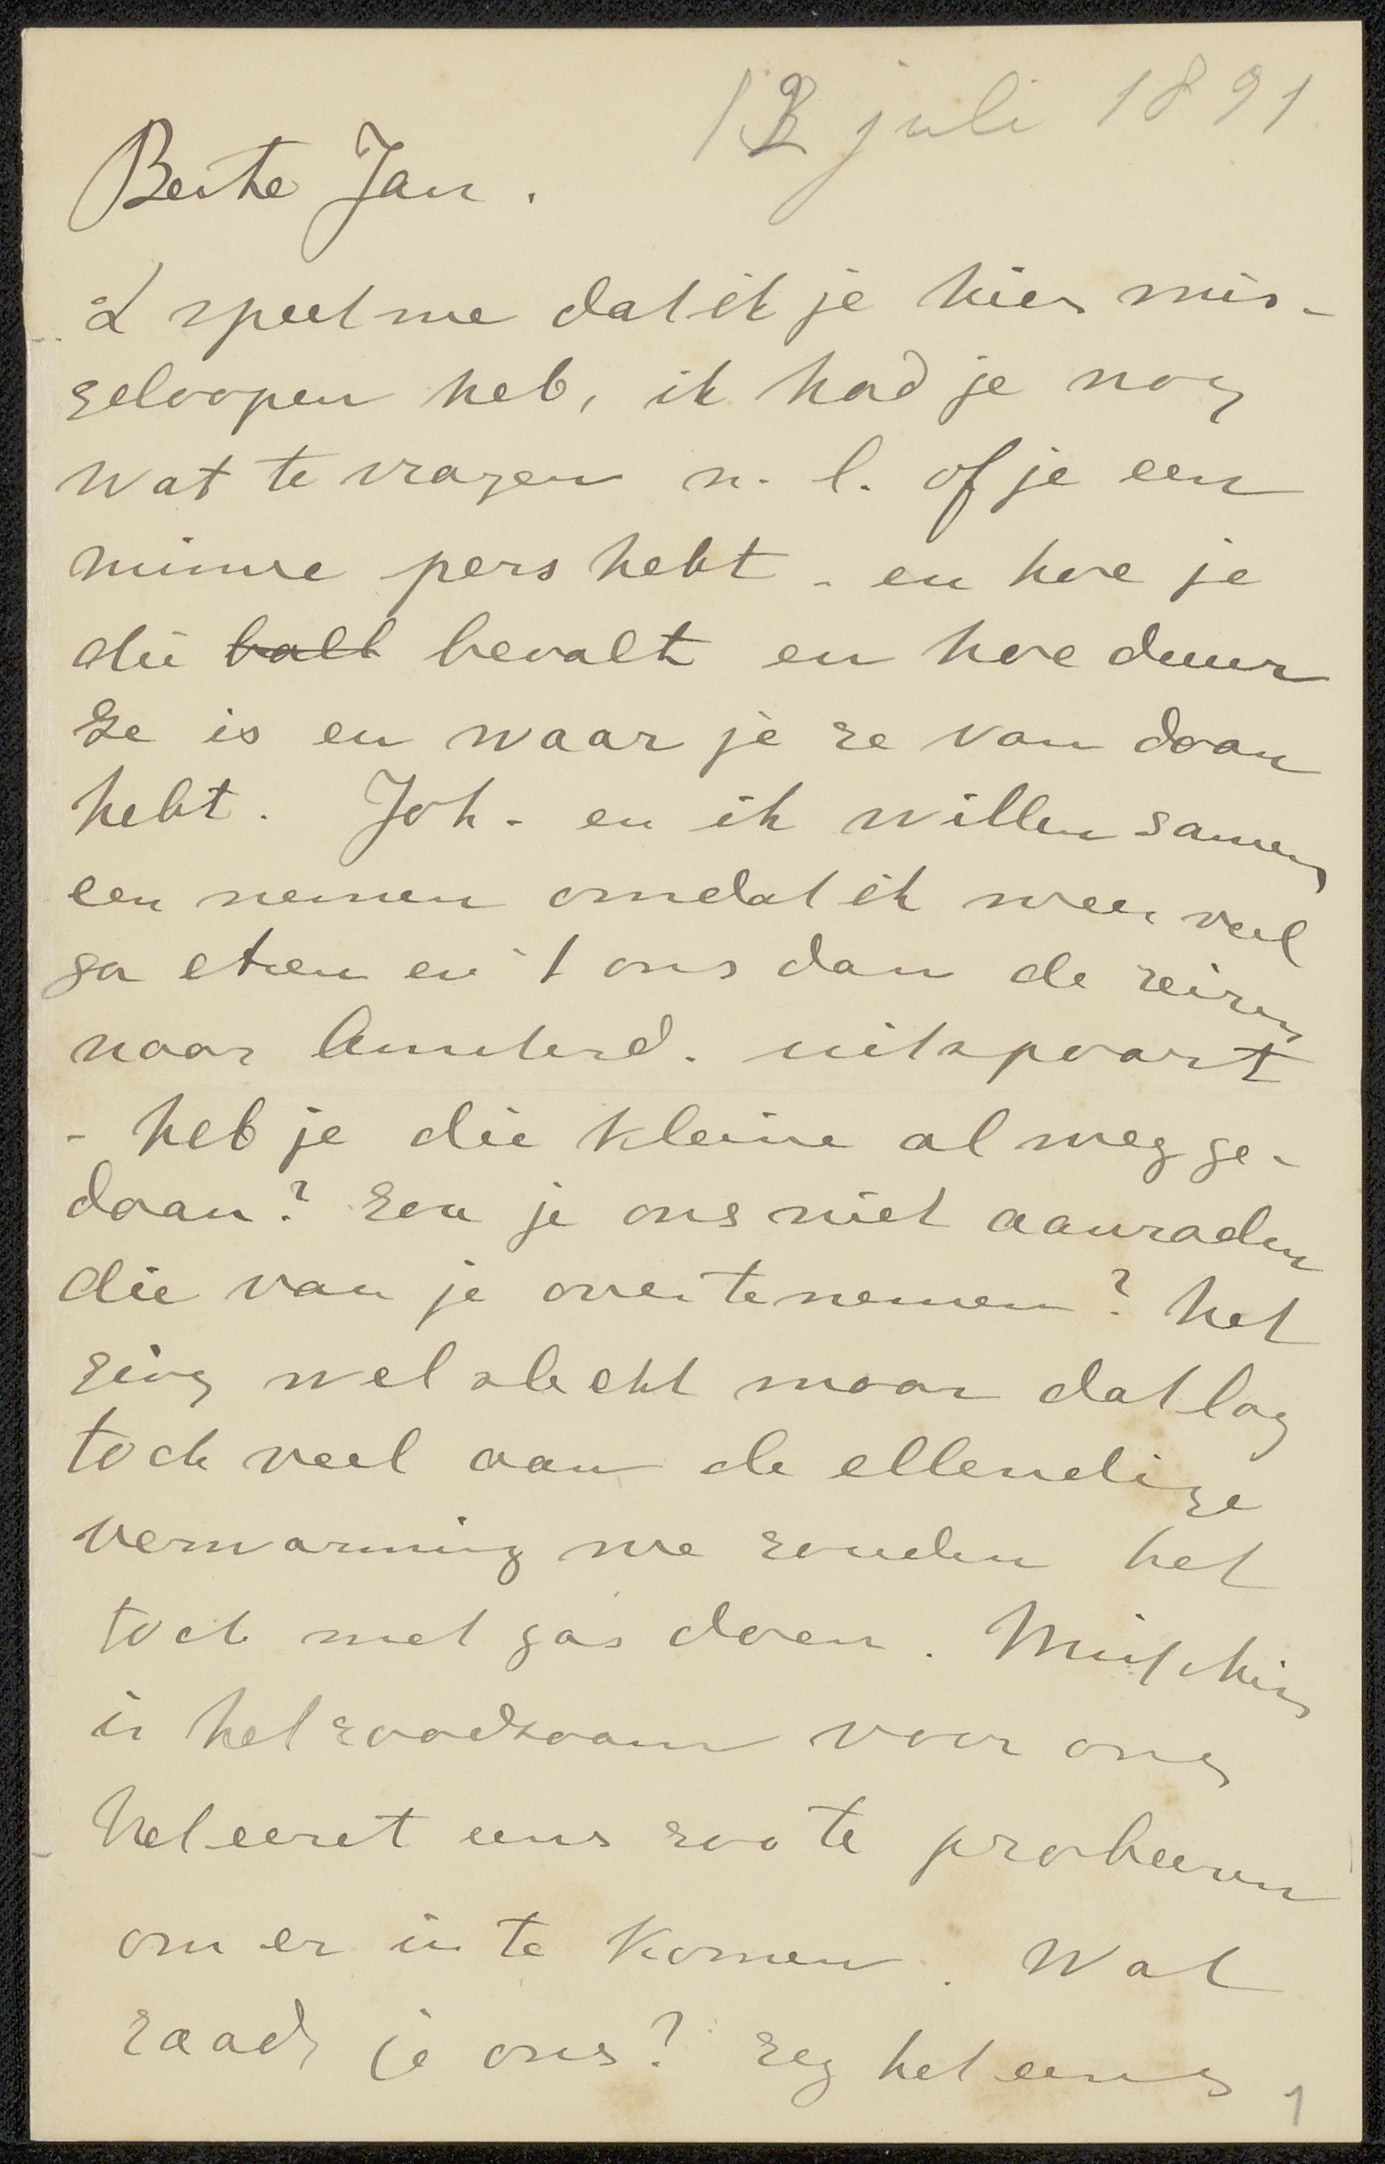 12 juli 1891
Beste Jan.
't speet me dat ik je hier mis-
geloopen heb, ik had je nog
wat te vragen n. l. of je een
nieuwe pers hebt - en hoe je
die valt bevalt en hoe duur
ze is en waar je ze van daan
hebt. Joh. en ik willen samen
een nemen omdat ik weer veel
ga etsen en 't ons dan de reizen
naar Amsterd. uitspaart
- heb je die kleine al weg ge-
daan? zou je ons niet aanraden
die van je over te nemen? het
ging wel slecht maar dat lag
toch veel aan de ellendige
verwarming we zouden het
toch met gas doen. Misschien
is het raadzaam voor ons
het eerst eens zoo te probeeren
om er in te komen. Wat
raadt je ons? zeg het eens
1